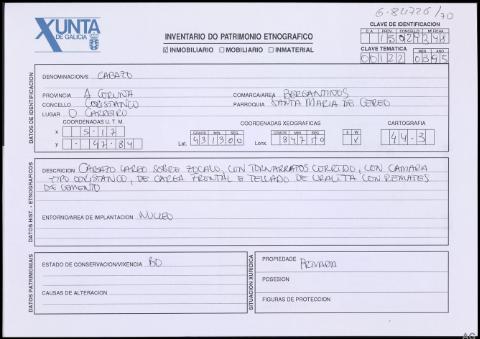 6-84726/70
XUNTA
DE GALICIA
INVENTARIO DO PATRIMONIO ETNOGRAFICO
INMOBILIARIO MOBILIARIO INMATERIAL
CLAVE DE IDENTIFICACION
C.A. PROV. CONCELLO MARCA
CLAVE TEMATICA
DATOS DE IDENTIFICACION
DENOMINACIONS CABAZO
PROVINCIA A CORUÑA
COMARCA/AREA BERGANTIÑOS
CONCELLO CORISTANCO
PARROQUIA SANTA MARIA DE CEREO
LUGAR O CARREIRO
COORDENADAS U.T.M.
COORDENADAS XEOGRAFICAS
CARTOGRAFIA
X 5 1 7
Y 47 84
Lat. 431300
Lonx. 84710 W
44-3
DATOS HIST. - ETNOGRAFICOS
DESCRICION CABAZO LAREO SOBRE ZOCALO, CON TORNARRATOS CORRIDO, CON CAMARA
TIPO CORISTANCO, DE CARGA FRONTAL E TELLADO DE URALITA CON REMATES
DE CEMENTO
ENTORNO/AREA DE IMPLANTACION NUCLEO
DATOS PATRIMONIAIS
ESTADO DE CONSERVACION/VIXENCIA BO
CAUSAS DE ALTERACION
SITUACION XURIDICA
PROPIEDADE PRIVADA
POSESION
FIGURAS DE PROTECCION